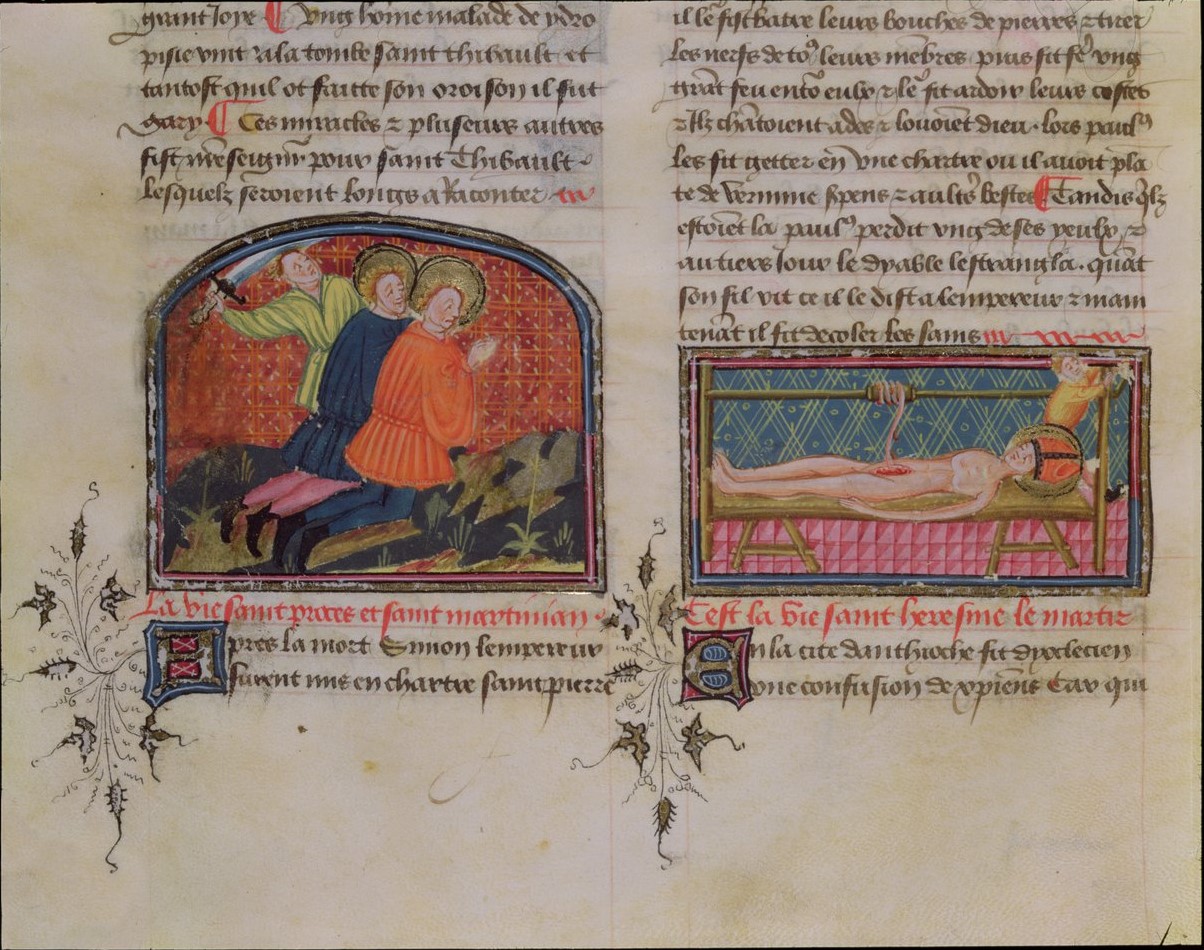 grant Joye ¶ Ung home malade de ydro
pisie vint a la tombe saint thibault et
tantost quil ot faitte son oroison il fut
gary ¶ Ces miracles ⁊ pluseurs autres
fist nr̃e seignur pour saint Thibault
lesquelz seroient longs a Raconter
La vie saint proces et saint martinian
Apres la mort Simon lempereur
furent mis en chartre saint pierre
il le fist batre leurs bouches de pierres ⁊ tirer
les nerfs de to⁹ leurs mẽbres puis fit fẽ ung
grãt feu entõ eulx ⁊ le fit ardoir leurs costes
⁊ ilz chãtoient ades ⁊ louoiẽt dieu. lors paul⁹
les fit getter en vne chartre ou il auoit plã
te de vermine spens ⁊ aultˢ bestes ¶ Tandis qlz
estoiẽt la paul⁹ perdit ung de ses yeulx ⁊
au tiers Jour le dyable lestrangla. quãt
son fil vit ce il le dist a lempereur ⁊ main
tenãt il fit decoler les sains
Cest la vie saint heresme le martir
En la cite danthioche fit dyoclecien
vne confusion de xp̃iens Car qui